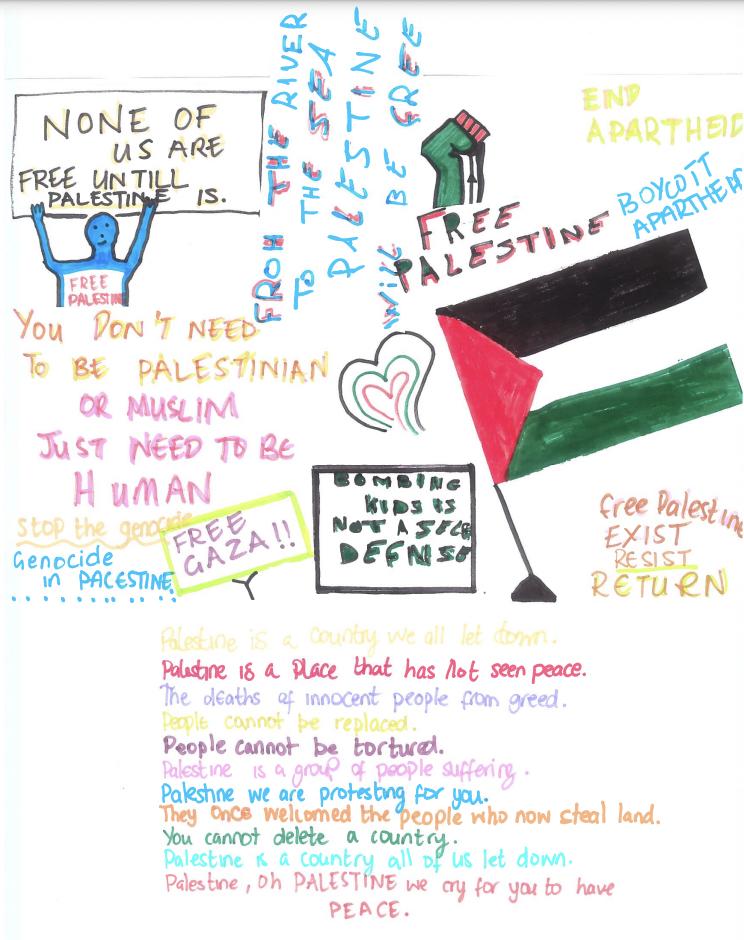 NONE OF
US ARE
FREE UNTILL
PALESTINE IS.
FREE
PALESTIN
FROM THE RIVER
TO THE SEA
PALESTINE
WILL BE FREE
FREE
PALESTINE
END
APARTHEID
BOYCOTT
APARTHEID
YOU DON'T NEED
TO BE PALESTINIAN
OR MUSLIM
JUST NEED TO BE
HUMAN
Stop the genocide
Genocide
in PALESTINE
FREE
GAZA!!
BOMBING
KIDS IS
NOT A SELF
DEFNSE
free Palestine
EXIST
RESIST
RETURN
Palestine is a country we all let down.
Palestine is a place that has not seen peace.
The deaths of innocent people from greed.
People cannot be replaced.
People cannot be tortured.
Palestine is a group of people suffering.
Palestine we are protesting for you.
They once welcomed the people who now steal land.
You cannot delete a country.
Palestine is a country all of us let down.
Palestine, Oh PALESTINE we cry for you to have
PEACE.